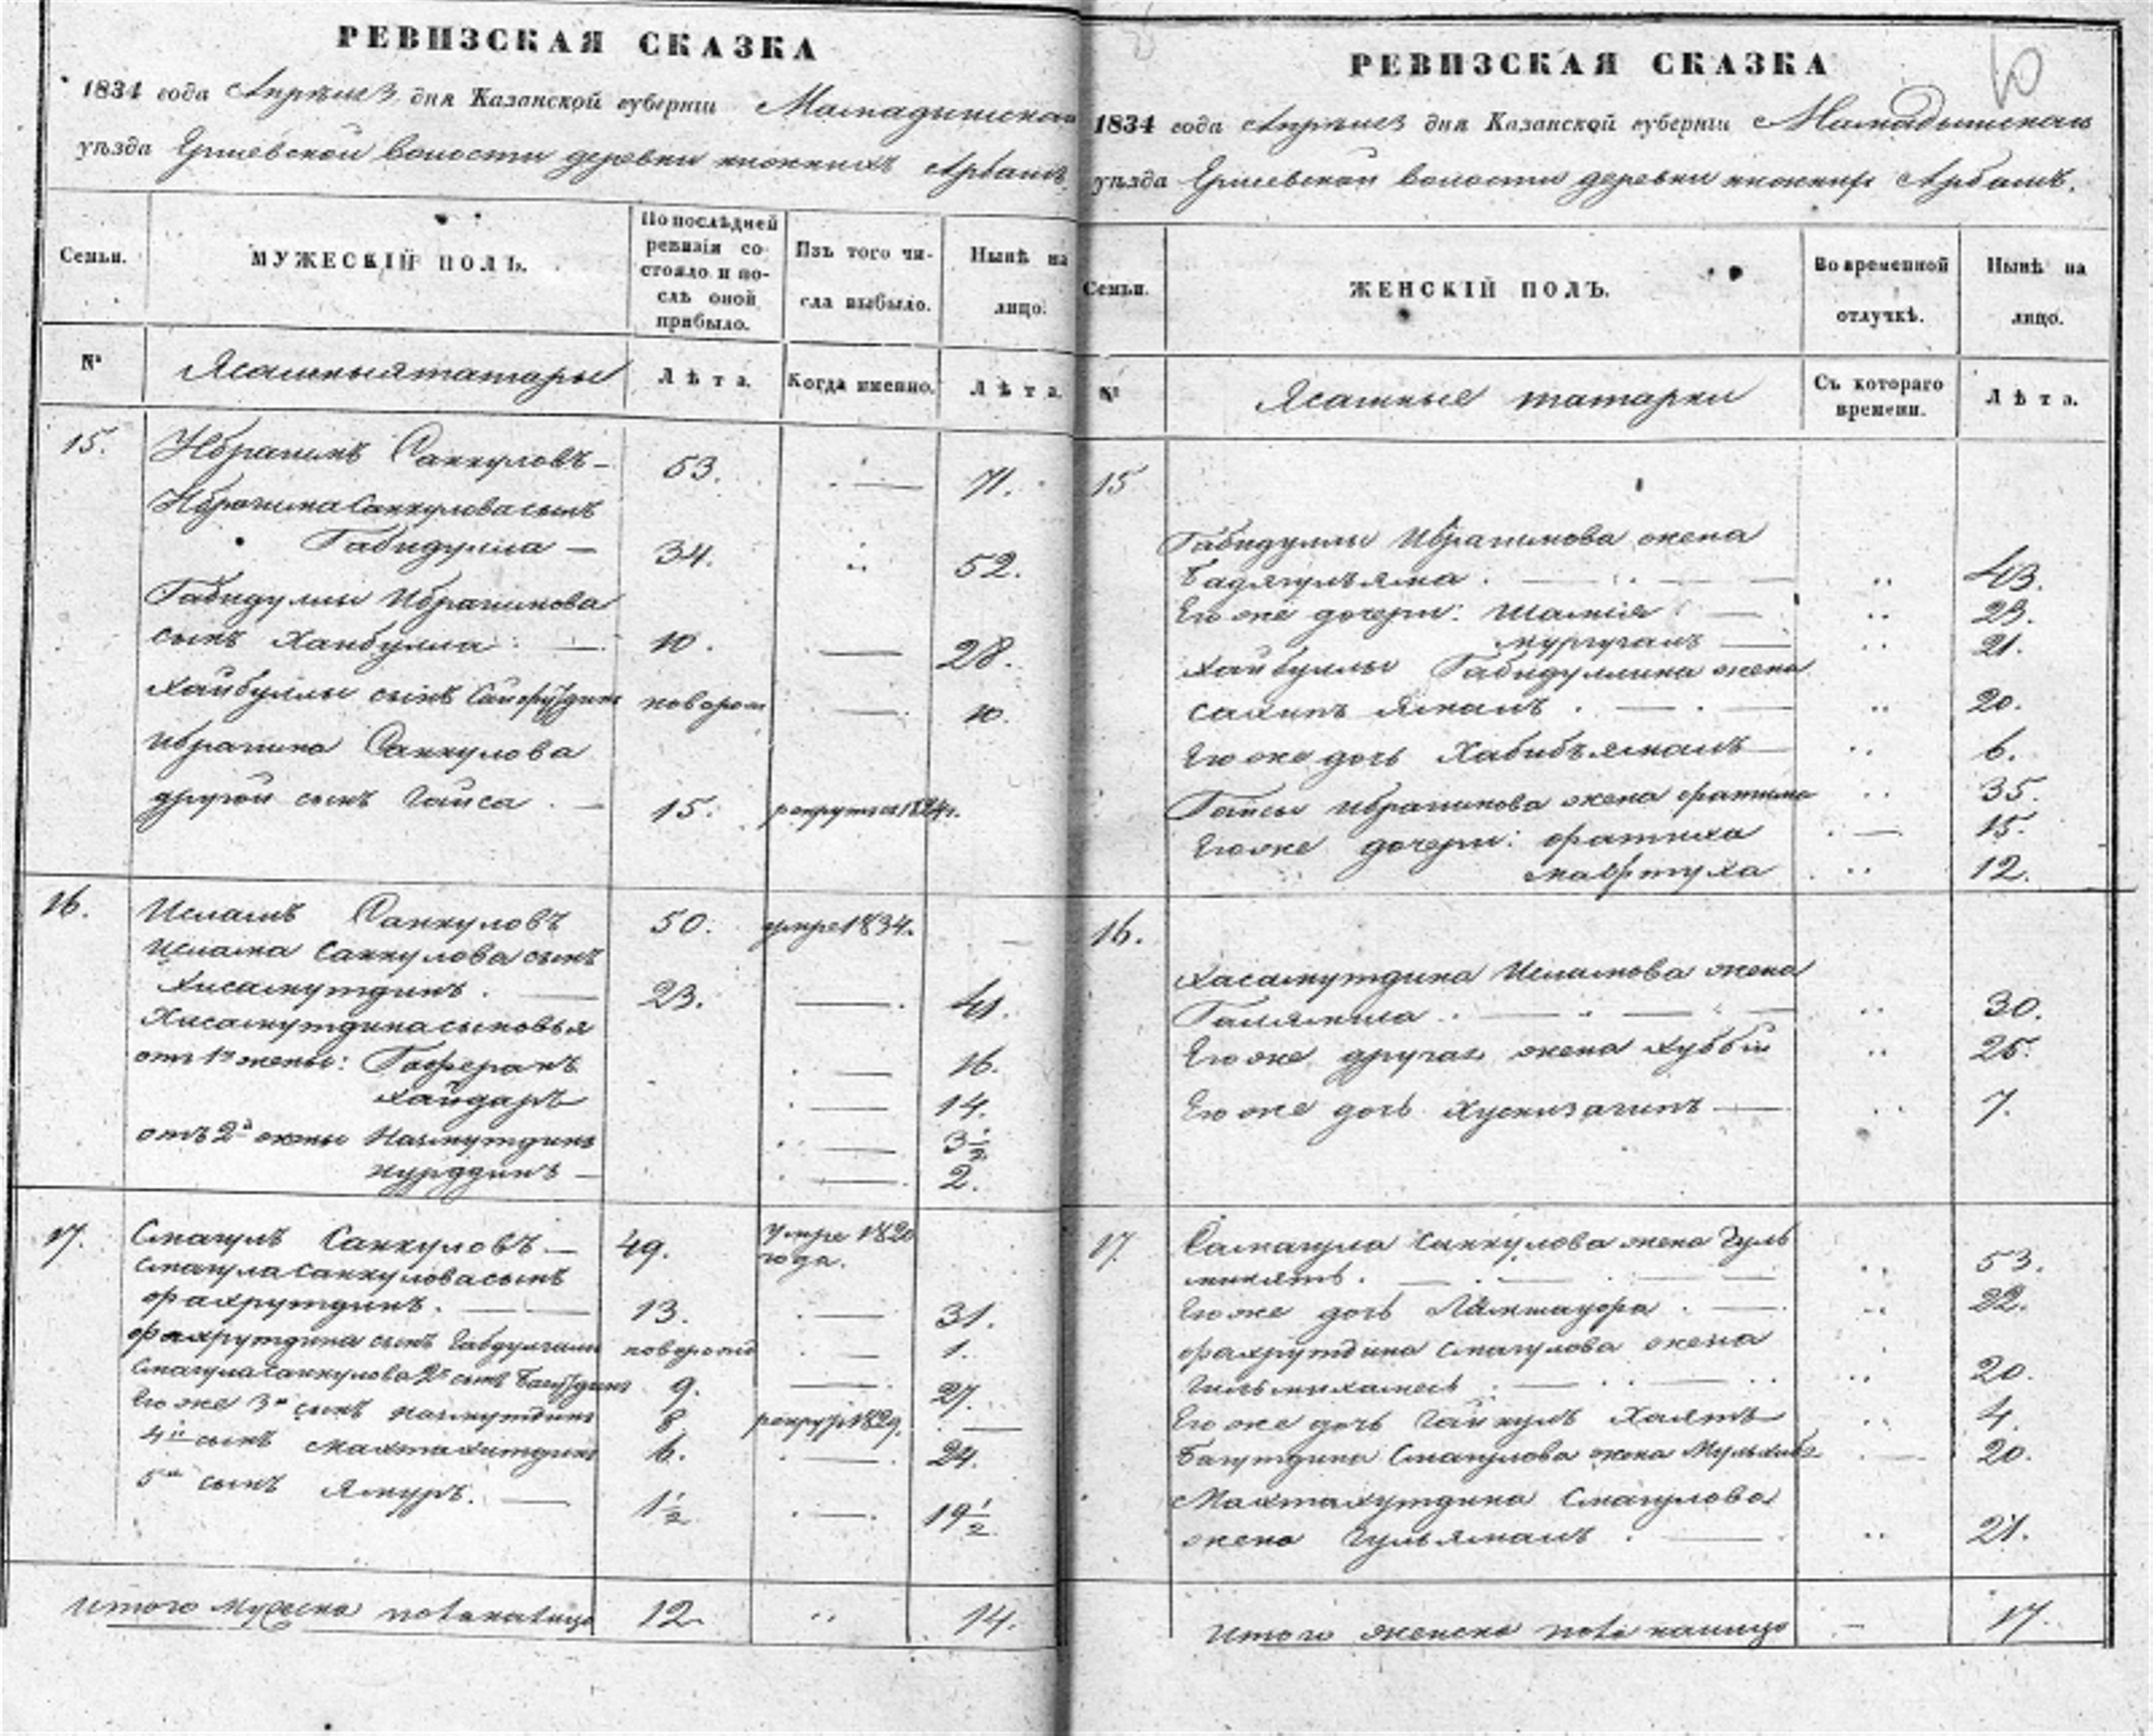 РЕВИЗСКАЯ СКАЗКА
1834 года Апреля 3 дня Казанской губернiи Мамадышскаго
уѣзда волости деревни нижнихъ Арбашъ
Семьи.
МУЖЕСКIЙ ПОЛЪ.
По послѣдней ревизiи состояло и послѣ оной прибыло.
Изъ того числа выбыло.
Нынѣ на лицо.
№
Ясашныя татары
Лѣта.
Когда именно.
Лѣта.
15. Ибрагимъ Санкуловъ 53. 71.
Ибрагима Санкулова сынъ
Габидулла 34. 52.
Габидуллы Ибрагимова
сынъ Хайбулла 10. 28.
Хайбуллы сынъ новорож 10.
Ибрагима Санкулова
другой сынъ Гайса 15. рекрутъ 1824 г.
16. Исламъ Санкуловъ 50. умре 1834.
Ислама Санкулова сынъ
Хисамутдинъ 23. 41.
Хисамутдина сыновья
отъ 1й жены: 16.
Хайдаръ 14.
отъ 2й жены Назмутдинъ 3½
Нурддинъ 2.
17. Смагулъ Санкуловъ 49. Умре 1820 года.
Смагула Санкулова сынъ
Фахрутдинъ. 13. 31.
Фахрутдина сынъ новорожд 1.
Смагула Санкулова 2й сынъ 9. 27.
Его же 3й сынъ Назмутдинъ 8 рекрут 1829.
4й сынъ 6. 24.
5й сынъ Ямуръ. 1½ 19½
Итого мужеска пола налицо 12. 14.
РЕВИЗСКАЯ СКАЗКА
1834 года Апреля 3 дня Казанской губернiи Мамадышскаго
уѣзда волости деревни нижнихъ Арбашъ.
Семьи.
ЖЕНСКIЙ ПОЛЪ.
Во временной отлучкѣ.
Нынѣ на лицо.
№
Ясашныя татарки
Съ котораго времени.
Лѣта.
15
Габидуллы Ибрагимова жена
43.
Его же дочери: Шамсiя 23.
21.
Хайбуллы Габидуллина жена
Салипъ Ямалъ. 20.
Его же дочь Хабибъямалъ 6.
Гайсы Ибрагимова жена Фатима 35.
Его же дочери: Фатиха 15.
Мафтуха 12.
16.
Хасамутдина Исламова жена
30.
Его же другая жена Хуббiя 25.
Его же дочь 7.
17. Самагула Санкулова жена Гуль
53.
Его же дочь 22.
Фахрутдина Смагулова жена
20.
Его же дочь 4.
Багутдина Смагулова жена 20.
Смагулова
жена Гульямалъ. 21.
Итого женска пола налицо 17.